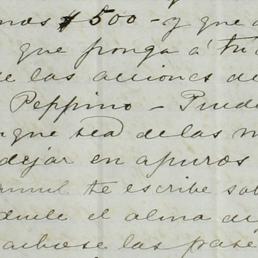 nos $500 - y que d
que ponga á tu
e las acciones de
Peppino - Puede
que sea de las m
dejar en apuros
te escribe sob
el alma de
las pase